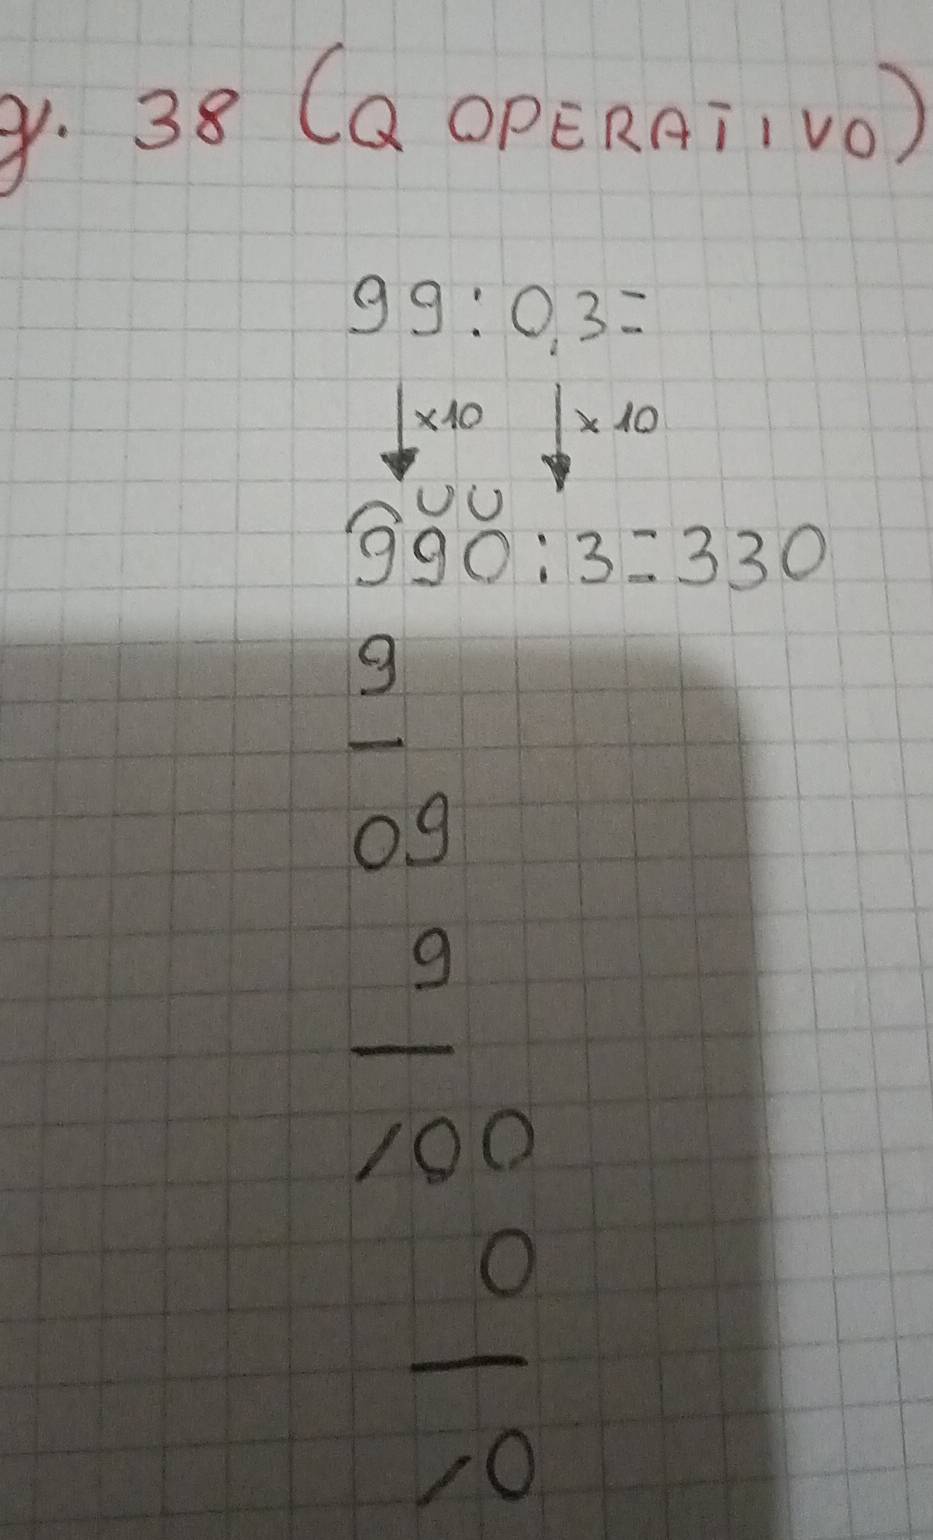 g. 38 (Q OPERATIVO)
99:0,3=
×10 ×10
990:3=330
9
—
09
9
—
/00
0
—
/0